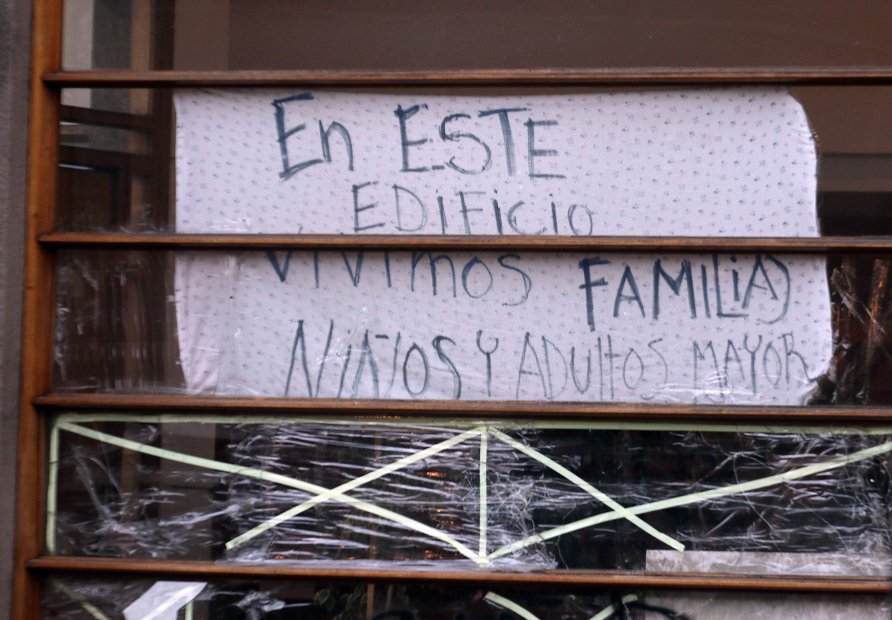 En ESTE
EDIFICIO
VIVIMOS FAMILIAS
NIÑOS Y ADULTOS MAYOR